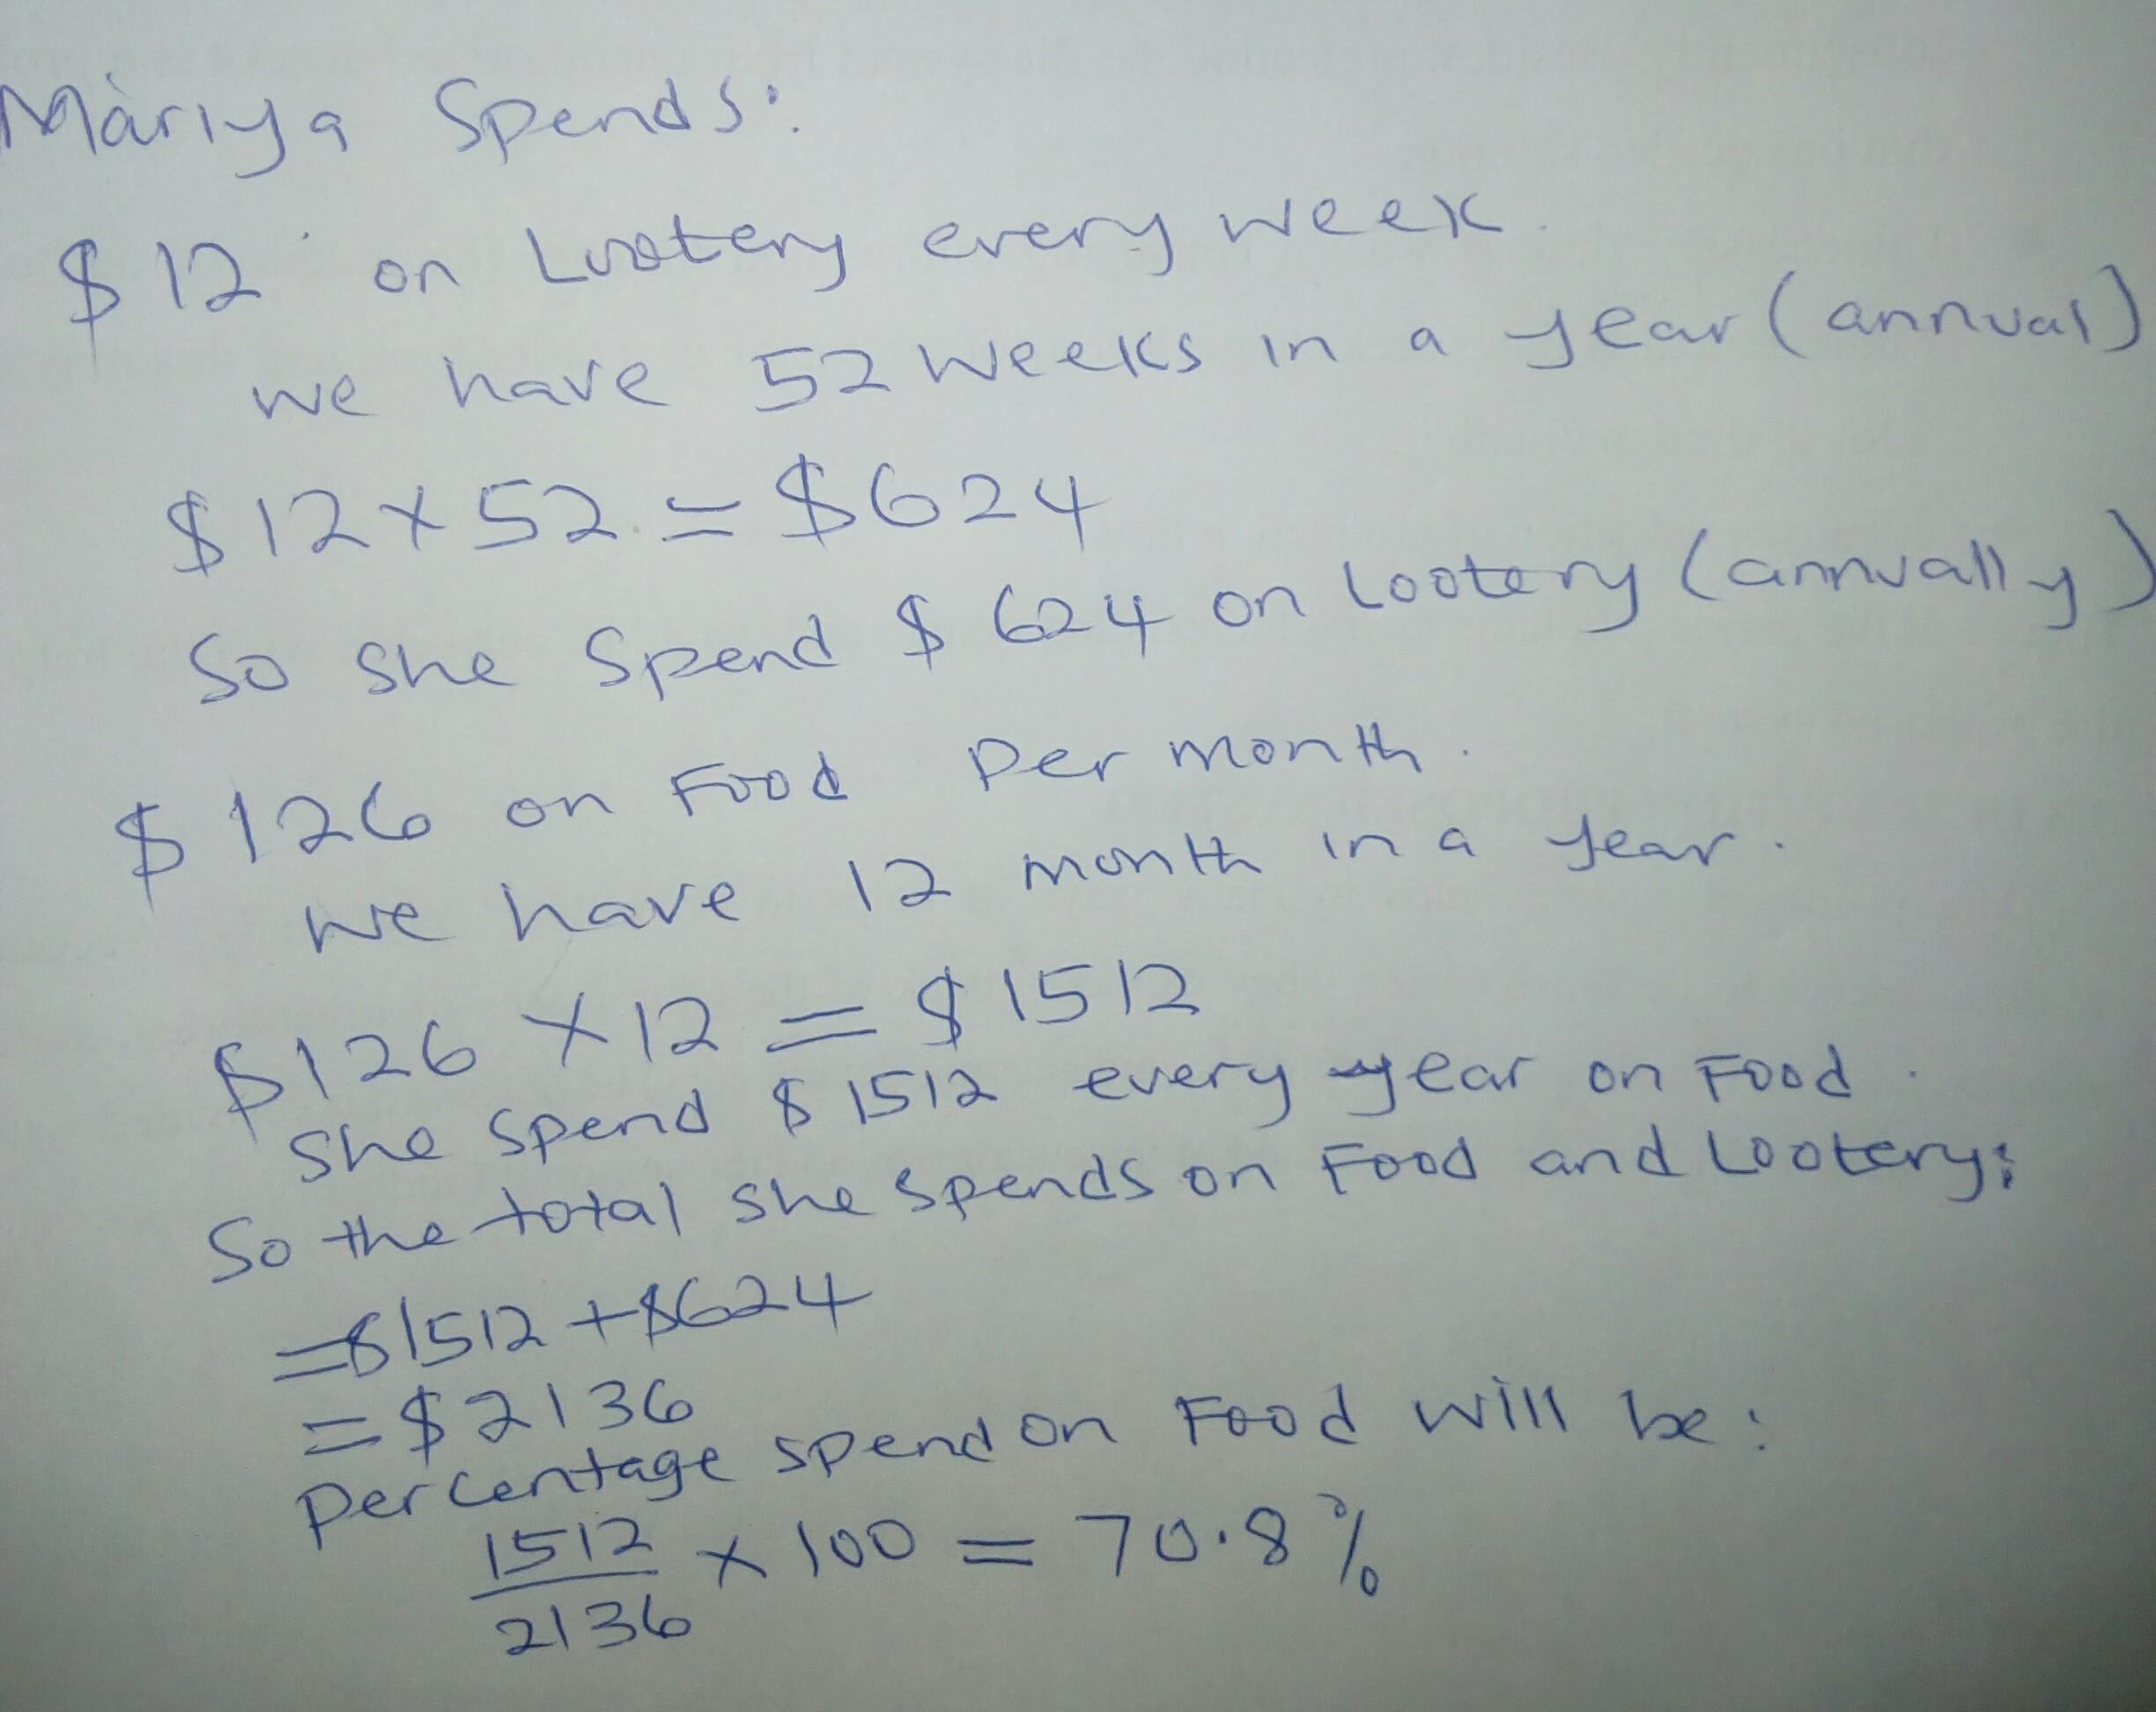 Mariya Spends:
$12 on Lootery every week.
we have 52 weeks in a year (annual)
$12 x 52 = $624
So she Spend $624 on Lootery (annually)
$126 on Food Per month.
we have 12 month in a year.
$126 x 12 = $1512
She spend $1512 every year on Food.
So the total she spends on Food and Lootery:
=$1512 + $624
= $2136
Percentage spend on Food will be:
1512/2136 x 100 = 70.8%